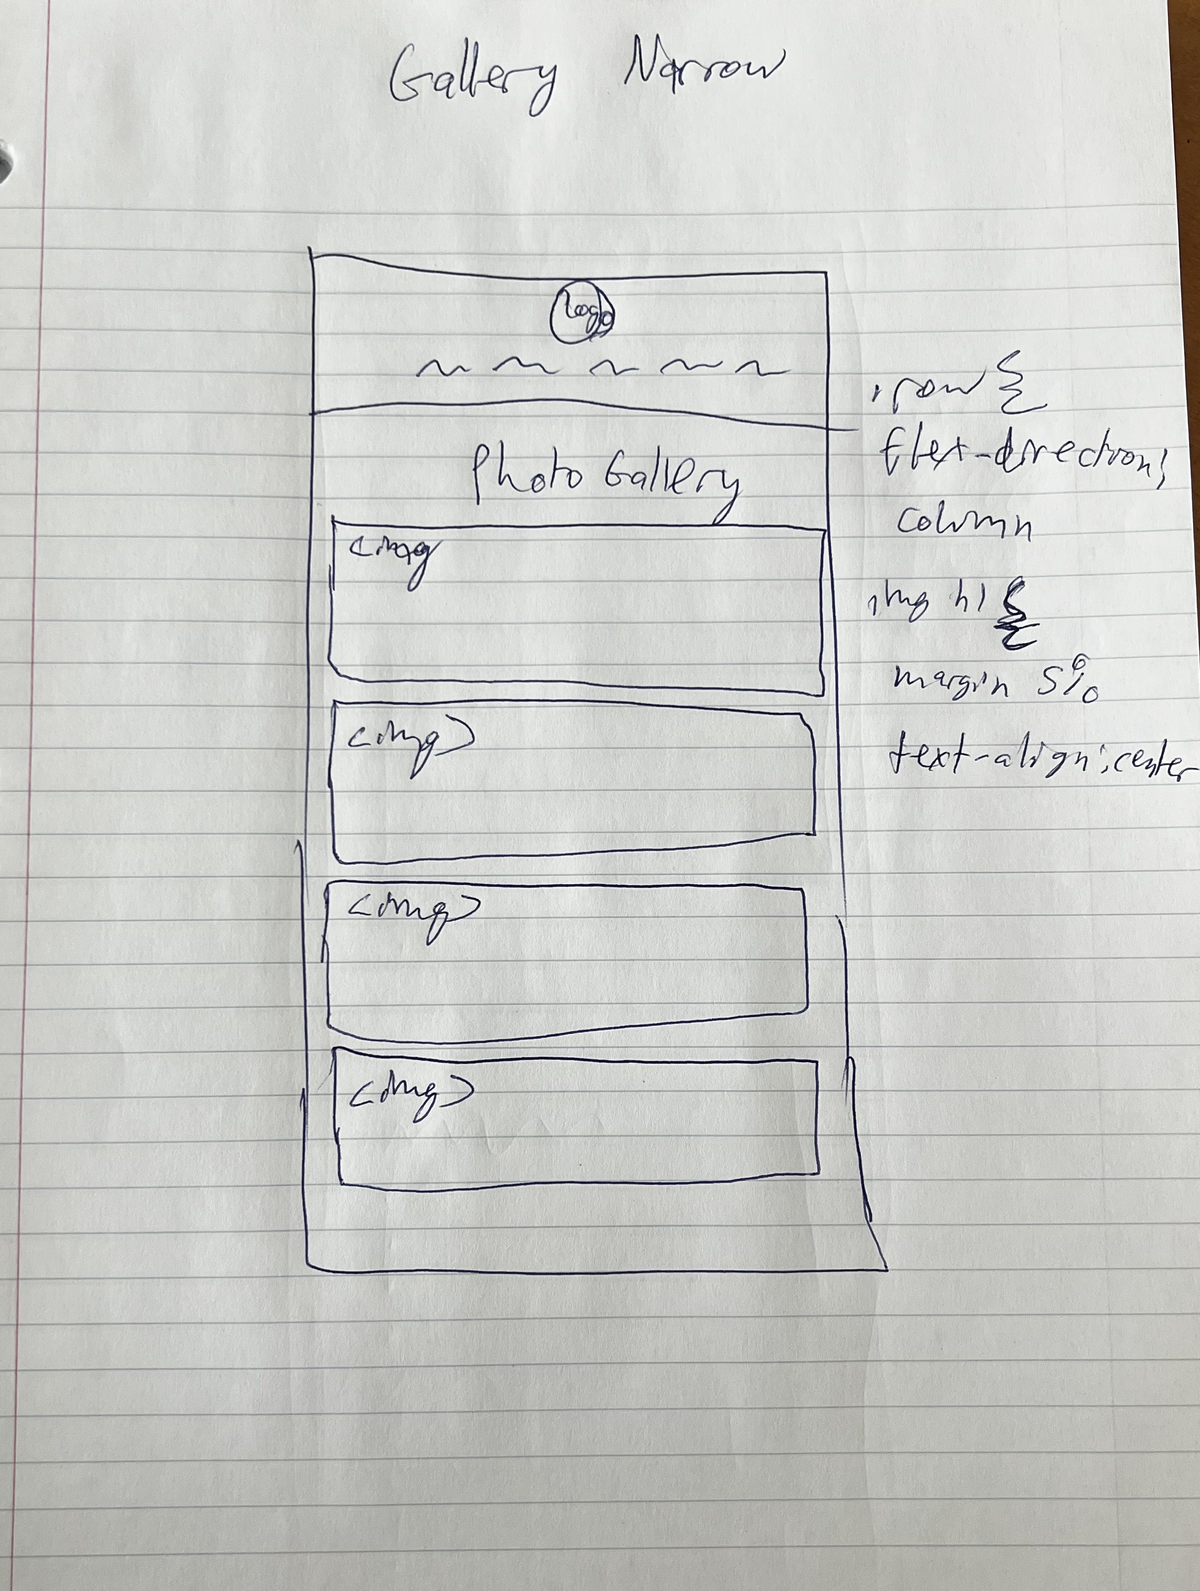 Gallery Narrow
Logo
Photo Gallery
<img
<img>
<img>
<img>
.row {
flex-direction;
column
img h1 {
margin 5%
text-align:center